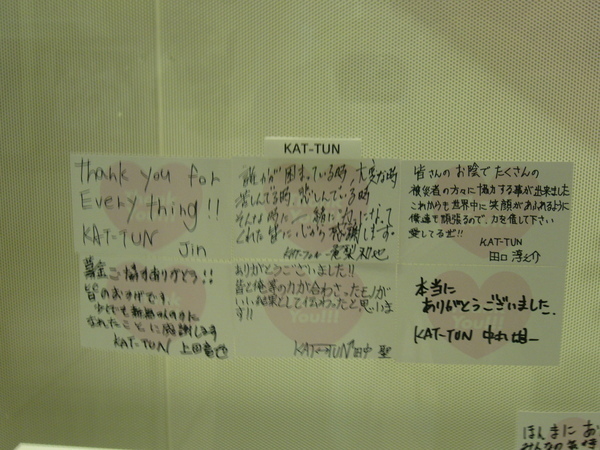 KAT-TUN
Thank you for
Everything!!
KAT-TUN
Jin
誰かが困まっている時、大変な時
苦しんでる時、悲しんでいる時
そんな時に一緒に力になって
くれた皆に心から感謝します。
KAT-TUN 亀梨和也
皆さんのお陰でたくさんの
被災者の方々に協力する事が出来ました
これからも世界中に笑顔があふれるように
俺達も頑張るので、力を貸して下さい
愛してるぜ!!
KAT-TUN
田口淳之介
募金ご協力ありがとう!!
皆のおかげです。
なれたことに感謝してます
KAT-TUN 上田竜也
ありがとうございました!!
皆と俺等の力が合わさったモノが
いい結果として伝わったと思いま
す!!
KAT-TUN 田中 聖
本当に
ありがとうございました。
KAT-TUN 中丸雄一
You!!!
ほんまに お
みんなの気持